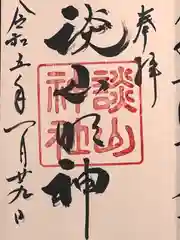 奉拝
談山明神
談山神社
令和五年一月廿九日